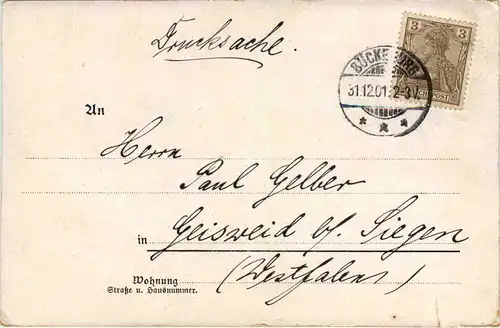 Drucksache.
3 3
BÜCKEBURG
31.12.01. 2-3 N.
An
Herrn
Paul Gelber
in Geisweid b/ Siegen
(Westfalens)
Wohnung
Straße u. Hausnummer.